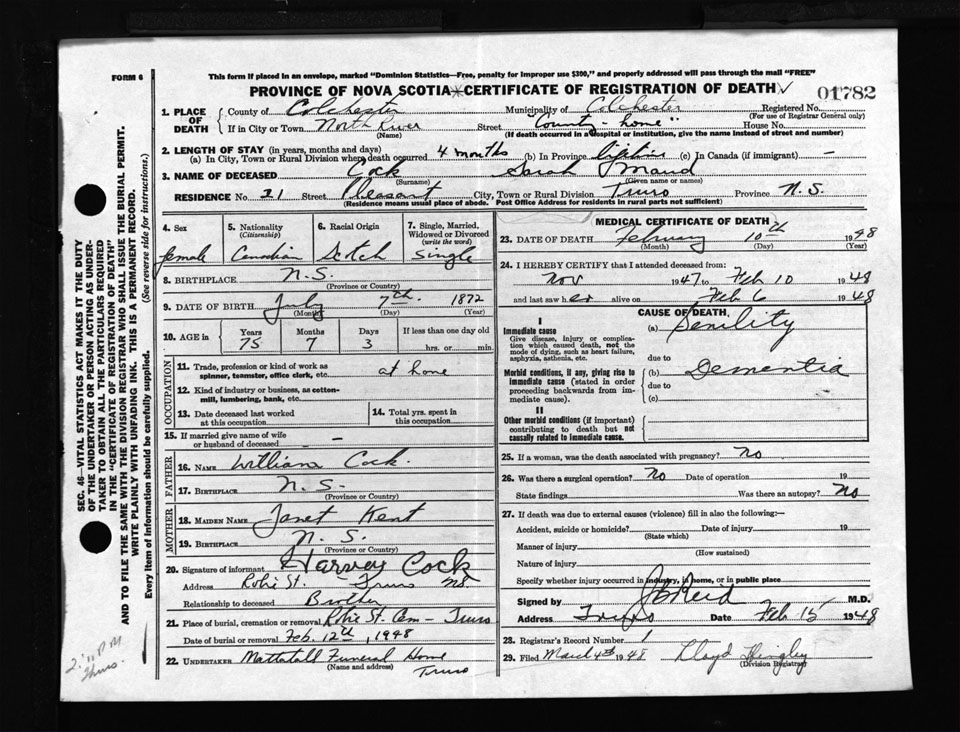 FORM 6
This form if placed in an envelope, marked "Dominion Statistics—Free, penalty for improper use $300," and properly addressed will pass through the mail "FREE"
PROVINCE OF NOVA SCOTIA—CERTIFICATE OF REGISTRATION OF DEATH
01782
1. PLACE OF DEATH
County of Colchester Municipality of Colchester Registered No.
(For use of Registrar General only)
If in City or Town North River Street "County-home" House No.
(Name) (If death occurred in a hospital or institution, give the name instead of street and number)
2. LENGTH OF STAY (in years, months and days)
(a) In City, Town or Rural Division where death occurred 4 months (b) In Province lifetime (c) In Canada (if immigrant) —
3. NAME OF DECEASED Cock Sarah Maud
(Surname) (Given name or names)
RESIDENCE No. 21 Street Pleasant City, Town or Rural Division Truro Province N.S.
(Residence means usual place of abode. Post Office Address for residents in rural parts not sufficient)
4. Sex
female
5. Nationality
(Citizenship)
Canadian
6. Racial Origin
Scotch
7. Single, Married, Widowed or Divorced
(write the word)
Single
8. BIRTHPLACE N.S.
(Province or Country)
9. DATE OF BIRTH July 7th. 1872
(Month) (Day) (Year)
10. AGE in
Years Months Days If less than one day old
75 7 3 hrs. or min.
OCCUPATION
11. Trade, profession or kind of work as
spinner, teamster, office clerk, etc. at home
12. Kind of industry or business, as cotton-
mill, lumbering, bank, etc.
13. Date deceased last worked
at this occupation
14. Total yrs. spent in
this occupation
15. If married give name of wife
or husband of deceased —
FATHER
16. NAME William Cock.
17. BIRTHPLACE N.S.
(Province or Country)
MOTHER
18. MAIDEN NAME Janet Kent
19. BIRTHPLACE N.S.
(Province or Country)
20. Signature of informant Harvey Cock
Address Robie St. - Truro NS.
Relationship to deceased Brother
21. Place of burial, cremation or removal Robie St. Cem - Truro
Date of burial or removal Feb. 12th, 1948
22. UNDERTAKER Mattatall Funeral Home
(Name and address) Truro
MEDICAL CERTIFICATE OF DEATH
23. DATE OF DEATH February 10th 1948
(Month) (Day) (Year)
24. I HEREBY CERTIFY that I attended deceased from:
Nov 1947 to Feb 10 1948
and last saw her alive on Feb 6 1948
CAUSE OF DEATH
I
Immediate cause
Give disease, injury or complica-
tion which caused death, not the
mode of dying, such as heart failure,
asphyxia, asthenia, etc.
(a) Senility
due to
Morbid conditions, if any, giving rise to
immediate cause (stated in order
proceeding backwards from im-
mediate cause).
(b) Dementia
due to
(c)
II
Other morbid conditions (if important)
contributing to death but not
causally related to immediate cause.
25. If a woman, was the death associated with pregnancy? No
26. Was there a surgical operation? No Date of operation 19
State findings Was there an autopsy? No
27. If death was due to external causes (violence) fill in also the following:—
Accident, suicide or homicide? Date of injury 19
(State which)
Manner of injury
(How sustained)
Nature of injury
Specify whether injury occurred in industry, in home, or in public place
Signed by J B Reid M.D.
Address Truro Date Feb 15 1948
28. Registrar's Record Number 1
29. Filed March 4th 1948 Lloyd
(Division Registrar)
SEC. 46—VITAL STATISTICS ACT MAKES IT THE DUTY
OF THE UNDERTAKER OR PERSON ACTING AS UNDER-
TAKER TO OBTAIN ALL THE PARTICULARS REQUIRED
IN THE "CERTIFICATE OF REGISTRATION OF DEATH"
AND TO FILE THE SAME WITH THE DIVISION REGISTRAR WHO SHALL ISSUE THE BURIAL PERMIT.
WRITE PLAINLY WITH UNFADING INK. THIS IS A PERMANENT RECORD.
Every item of information should be carefully supplied. (See reverse side for instructions.)